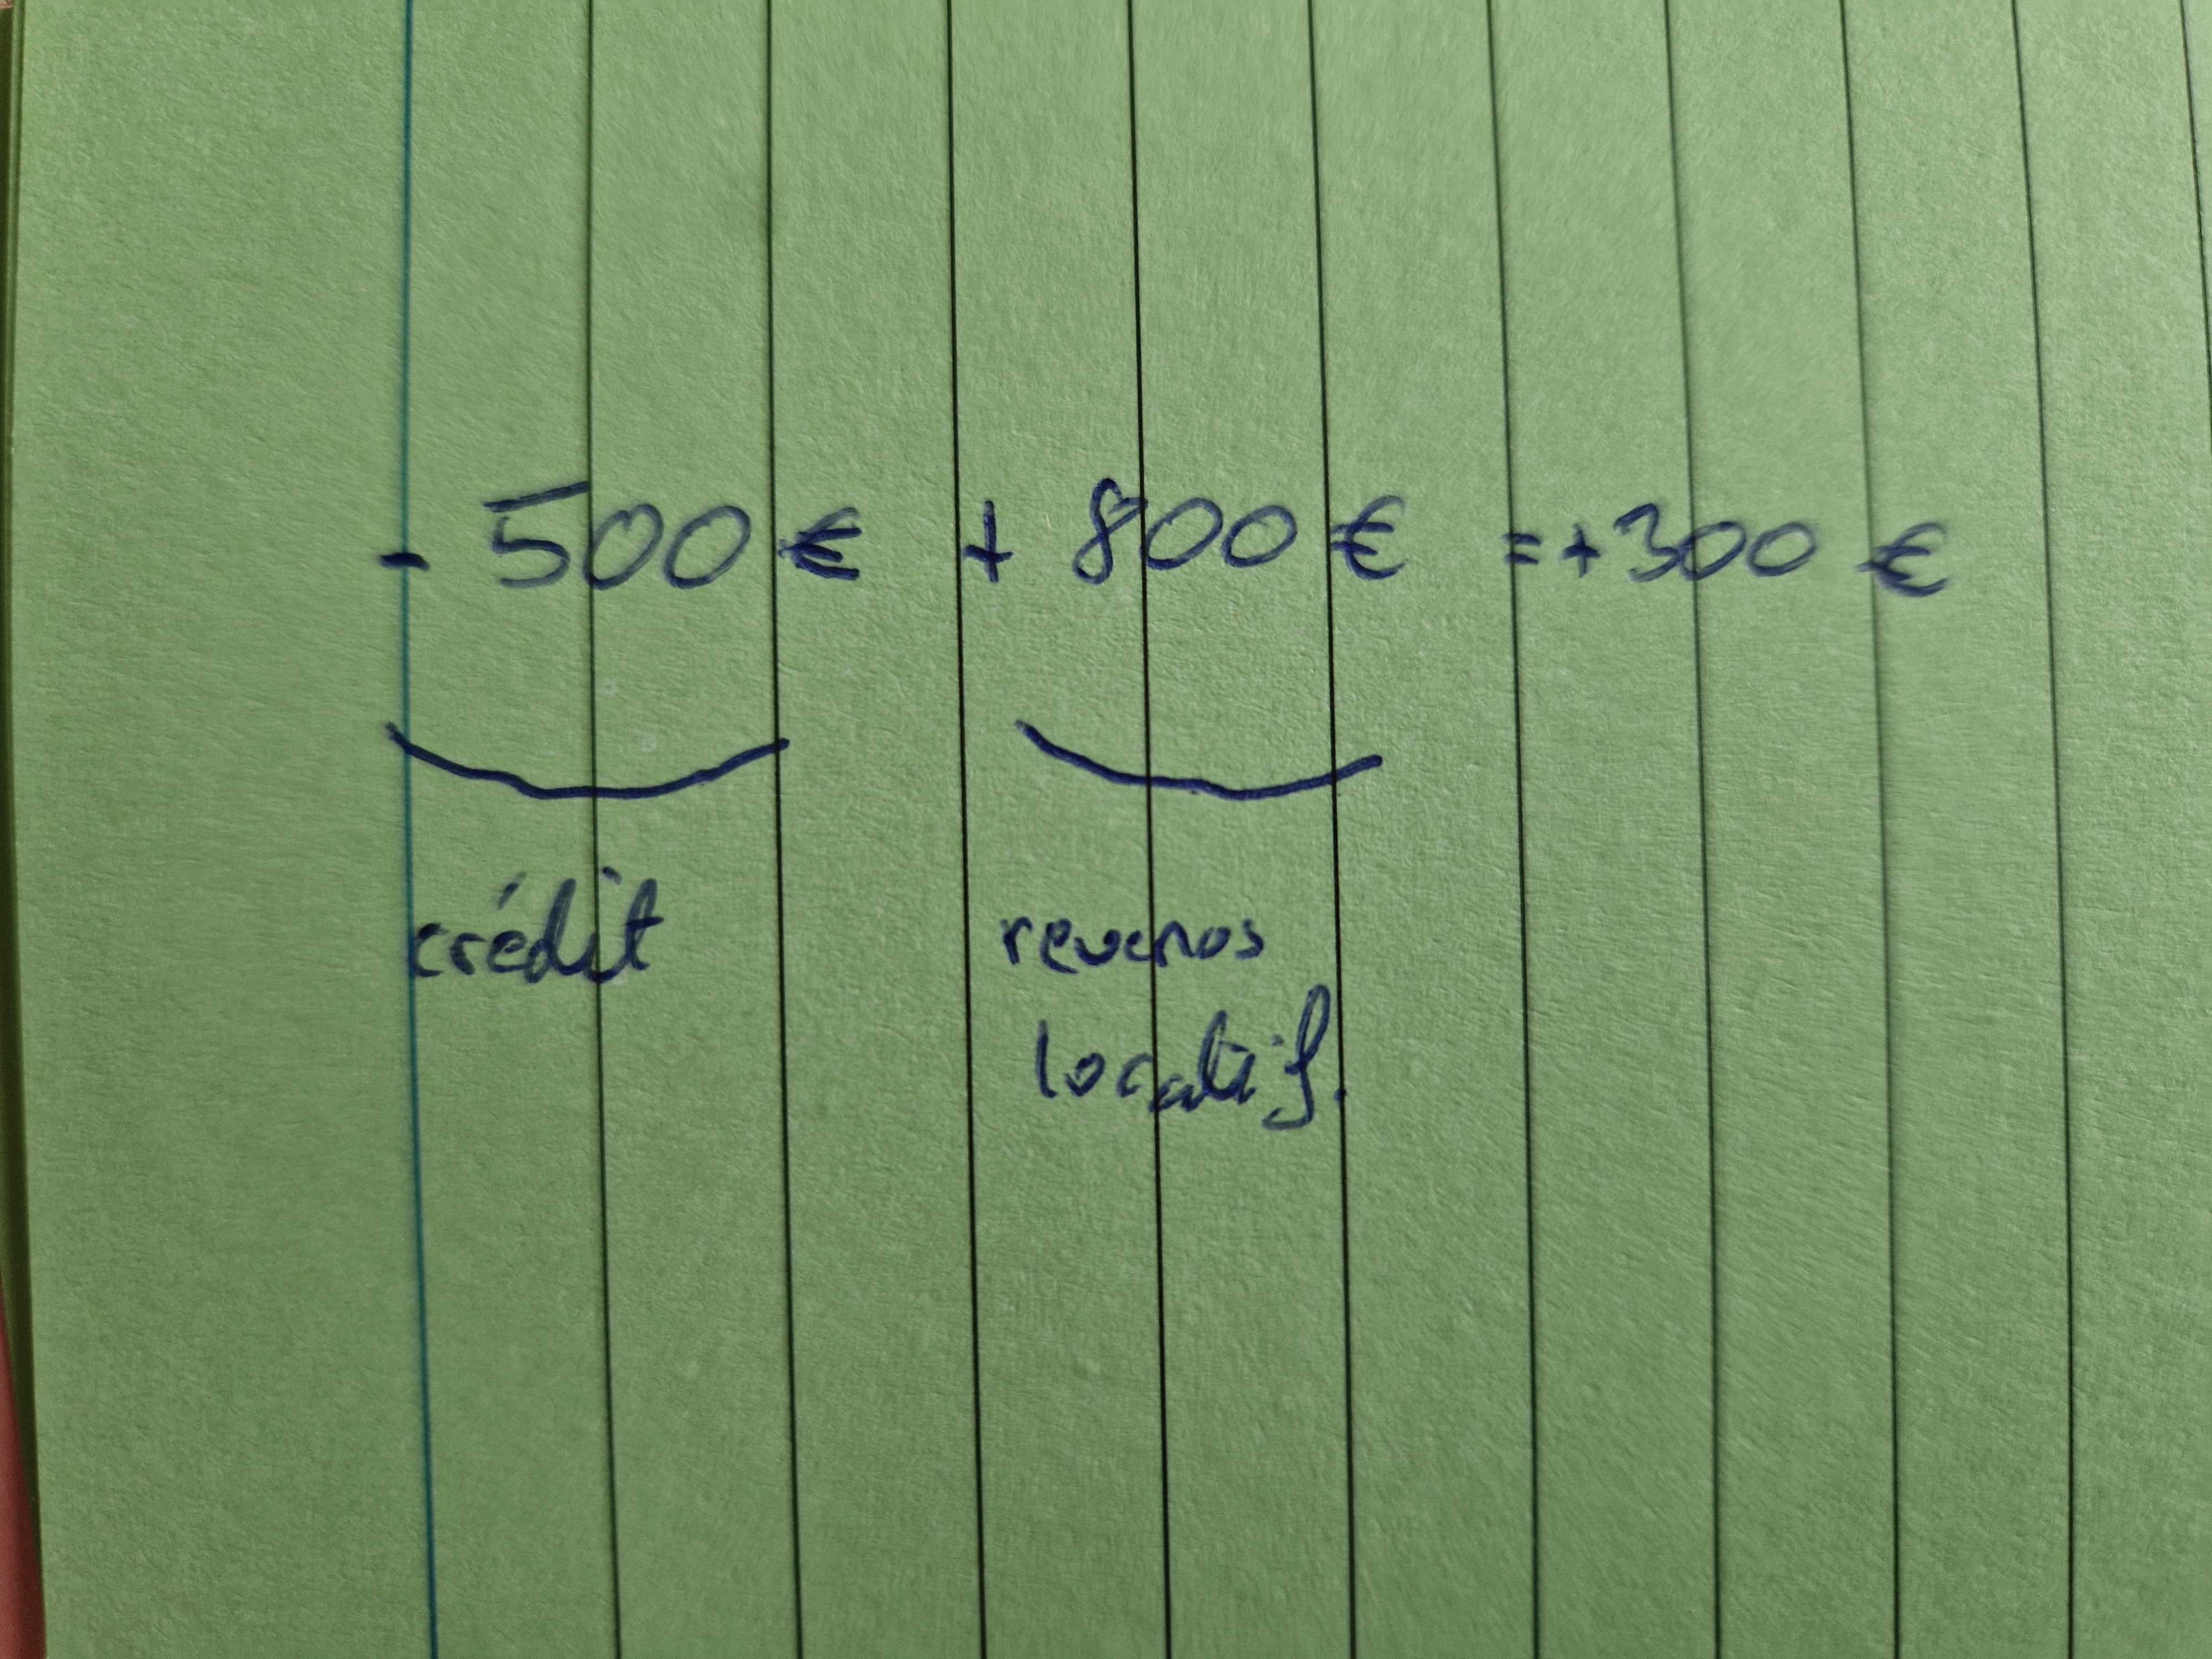 - 500 € + 800 € = + 300 €
crédit revenus
locatif.